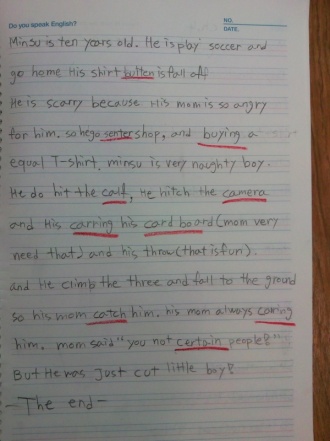 Do you speak English?
NO.
DATE.
Minsu is ten years old. He is play soccer and
go home His shirt button is fall off
He is scarry because His mom is so angry
for him. so he go senter shop, and buying a
equal T-shirt, minsu is very naughty boy.
He do hit the calf, He hitch the camera
and His carring his card board (mom very
need that) and his throw (that is fun).
and He climb the three and fall to the ground
so his mom catch him. his mom always caring
him. mom said "you not certain people!"
But He was just cut little boy!
- The end -